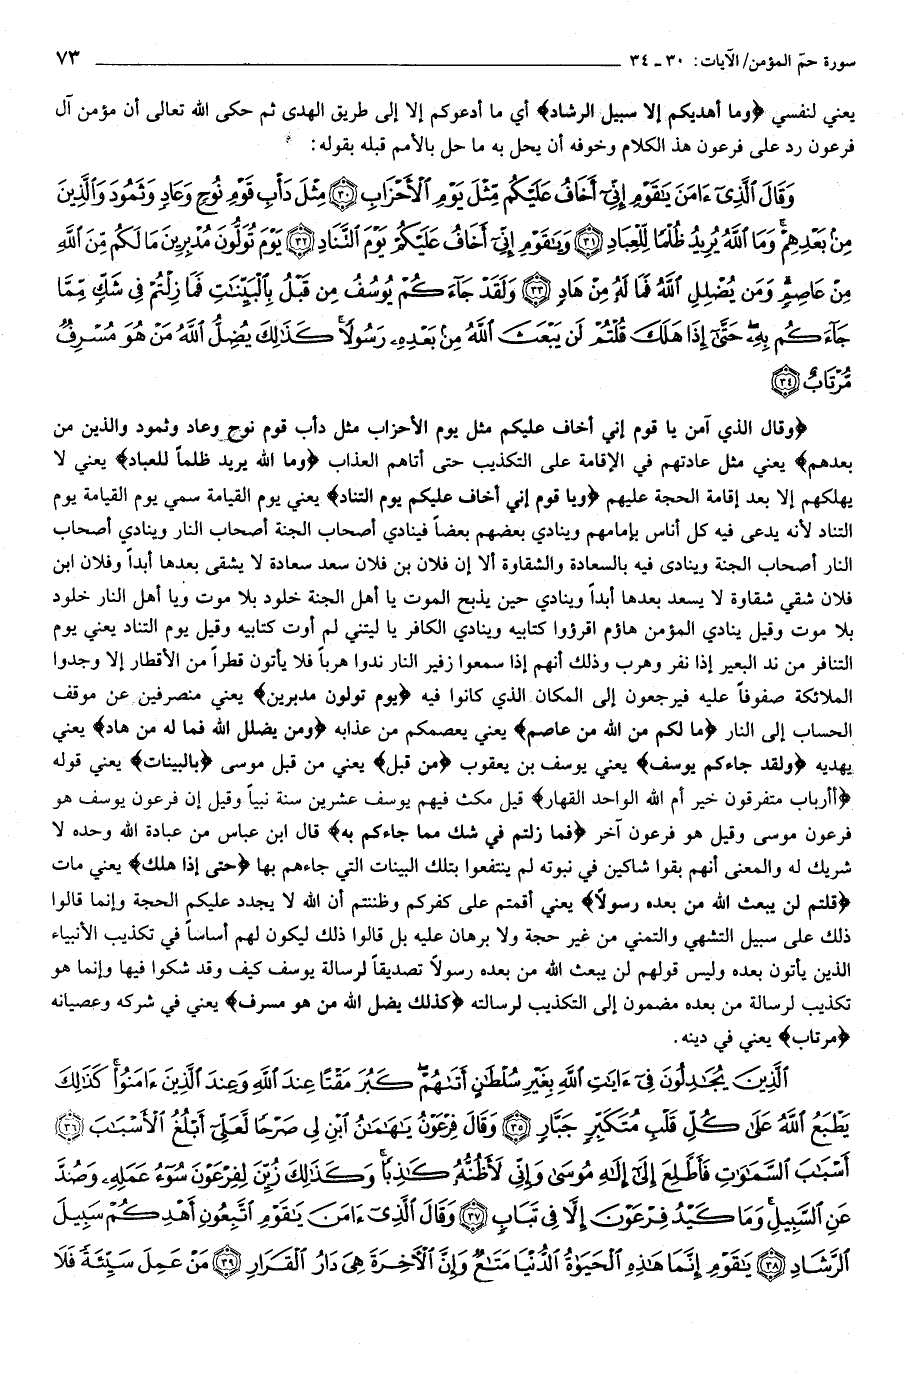 سورة حمۤ المؤمن/ الآيات: ٣٠ ـ ٣٤ ٧٣
يعني لنفسي ﴿وما أهديكم إلا سبيل الرشاد﴾ أي ما أدعوكم إلا إلى طريق الهدى ثم حكى الله تعالى أن مؤمن آل
فرعون رد على فرعون هذ الكلام وخوفه أن يحل به ما حل بالأمم قبله بقوله:
وَقَالَ ٱلَّذِىٓ ءَامَنَ يَٰقَوْمِ إِنِّىٓ أَخَافُ عَلَيْكُم مِّثْلَ يَوْمِ ٱلْأَحْزَابِ ﴿٣٠﴾ مِثْلَ دَأْبِ قَوْمِ نُوحٍ وَعَادٍ وَثَمُودَ وَٱلَّذِينَ
مِنۢ بَعْدِهِمْ ۚ وَمَا ٱللَّهُ يُرِيدُ ظُلْمًا لِّلْعِبَادِ ﴿٣١﴾ وَيَٰقَوْمِ إِنِّىٓ أَخَافُ عَلَيْكُمْ يَوْمَ ٱلتَّنَادِ ﴿٣٢﴾ يَوْمَ تُوَلُّونَ مُدْبِرِينَ مَا لَكُم مِّنَ ٱللَّهِ
مِنْ عَاصِمٍ ۗ وَمَن يُضْلِلِ ٱللَّهُ فَمَا لَهُۥ مِنْ هَادٍ ﴿٣٣﴾ وَلَقَدْ جَآءَكُمْ يُوسُفُ مِن قَبْلُ بِٱلْبَيِّنَٰتِ فَمَا زِلْتُمْ فِى شَكٍّ مِّمَّا
جَآءَكُم بِهِۦ ۖ حَتَّىٰٓ إِذَا هَلَكَ قُلْتُمْ لَن يَبْعَثَ ٱللَّهُ مِنۢ بَعْدِهِۦ رَسُولًا ۚ كَذَٰلِكَ يُضِلُّ ٱللَّهُ مَنْ هُوَ مُسْرِفٌ
مُّرْتَابٌ ﴿٣٤﴾
﴿وقال الذي آمن يا قوم إني أخاف عليكم مثل يوم الأحزاب مثل دأب قوم نوح وعاد وثمود والذين من
بعدهم﴾ يعني مثل عادتهم في الإقامة على التكذيب حتى أتاهم العذاب ﴿وما الله يريد ظلماً للعباد﴾ يعني لا
يهلكهم إلا بعد إقامة الحجة عليهم ﴿ويا قوم إني أخاف عليكم يوم التناد﴾ يعني يوم القيامة سمي يوم القيامة يوم
التناد لأنه يدعى فيه كل أناس بإمامهم وينادي بعضهم بعضاً فينادي أصحاب الجنة أصحاب النار وينادي أصحاب
النار أصحاب الجنة وينادى فيه بالسعادة والشقاوة ألا إن فلان بن فلان سعد سعادة لا يشقى بعدها أبداً وفلان ابن
فلان شقي شقاوة لا يسعد بعدها أبداً وينادي حين يذبح الموت يا أهل الجنة خلود بلا موت ويا أهل النار خلود
بلا موت وقيل ينادي المؤمن هاؤم اقرؤوا كتابيه وينادي الكافر يا ليتني لم أوت كتابيه وقيل يوم التناد يعني يوم
التنافر من ند البعير إذا نفر وهرب وذلك أنهم إذا سمعوا زفير النار ندوا هرباً فلا يأتون قطراً من الأقطار إلا وجدوا
الملائكة صفوفاً عليه فيرجعون إلى المكان الذي كانوا فيه ﴿يوم تولون مدبرين﴾ يعني منصرفين عن موقف
الحساب إلى النار ﴿ما لكم من الله من عاصم﴾ يعني يعصمكم من عذابه ﴿ومن يضلل الله فما له من هاد﴾ يعني
يهديه ﴿ولقد جاءكم يوسف﴾ يعني يوسف بن يعقوب ﴿من قبل﴾ يعني من قبل موسى ﴿بالبينات﴾ يعني قوله
﴿أأرباب متفرقون خير أم الله الواحد القهار﴾ قيل مكث فيهم يوسف عشرين سنة نبياً وقيل إن فرعون يوسف هو
فرعون موسى وقيل هو فرعون آخر ﴿فما زلتم في شك مما جاءكم به﴾ قال ابن عباس من عبادة الله وحده لا
شريك له والمعنى أنهم بقوا شاكين في نبوته لم ينتفعوا بتلك البينات التي جاءهم بها ﴿حتى إذا هلك﴾ يعني مات
﴿قلتم لن يبعث الله من بعده رسولاً﴾ يعني أقمتم على كفركم وظننتم أن الله لا يجدد عليكم الحجة وإنما قالوا
ذلك على سبيل التشهي والتمني من غير حجة ولا برهان عليه بل قالوا ذلك ليكون لهم أساساً في تكذيب الأنبياء
الذين يأتون بعده وليس قولهم لن يبعث الله من بعده رسولاً تصديقاً لرسالة يوسف كيف وقد شكوا فيها وإنما هو
تكذيب لرسالة من بعده مضمون إلى التكذيب لرسالته ﴿كذلك يضل الله من هو مسرف﴾ يعني في شركه وعصيانه
﴿مرتاب﴾ يعني في دينه.
ٱلَّذِينَ يُجَٰدِلُونَ فِىٓ ءَايَٰتِ ٱللَّهِ بِغَيْرِ سُلْطَٰنٍ أَتَىٰهُمْ ۖ كَبُرَ مَقْتًا عِندَ ٱللَّهِ وَعِندَ ٱلَّذِينَ ءَامَنُوا۟ ۚ كَذَٰلِكَ
يَطْبَعُ ٱللَّهُ عَلَىٰ كُلِّ قَلْبِ مُتَكَبِّرٍ جَبَّارٍ ﴿٣٥﴾ وَقَالَ فِرْعَوْنُ يَٰهَٰمَٰنُ ٱبْنِ لِى صَرْحًا لَّعَلِّىٓ أَبْلُغُ ٱلْأَسْبَٰبَ ﴿٣٦﴾
أَسْبَٰبَ ٱلسَّمَٰوَٰتِ فَأَطَّلِعَ إِلَىٰٓ إِلَٰهِ مُوسَىٰ وَإِنِّى لَأَظُنُّهُۥ كَٰذِبًا ۚ وَكَذَٰلِكَ زُيِّنَ لِفِرْعَوْنَ سُوٓءُ عَمَلِهِۦ وَصُدَّ
عَنِ ٱلسَّبِيلِ ۚ وَمَا كَيْدُ فِرْعَوْنَ إِلَّا فِى تَبَابٍ ﴿٣٧﴾ وَقَالَ ٱلَّذِىٓ ءَامَنَ يَٰقَوْمِ ٱتَّبِعُونِ أَهْدِكُمْ سَبِيلَ
ٱلرَّشَادِ ﴿٣٨﴾ يَٰقَوْمِ إِنَّمَا هَٰذِهِ ٱلْحَيَوٰةُ ٱلدُّنْيَا مَتَٰعٌ وَإِنَّ ٱلْءَاخِرَةَ هِىَ دَارُ ٱلْقَرَارِ ﴿٣٩﴾ مَنْ عَمِلَ سَيِّئَةً فَلَا